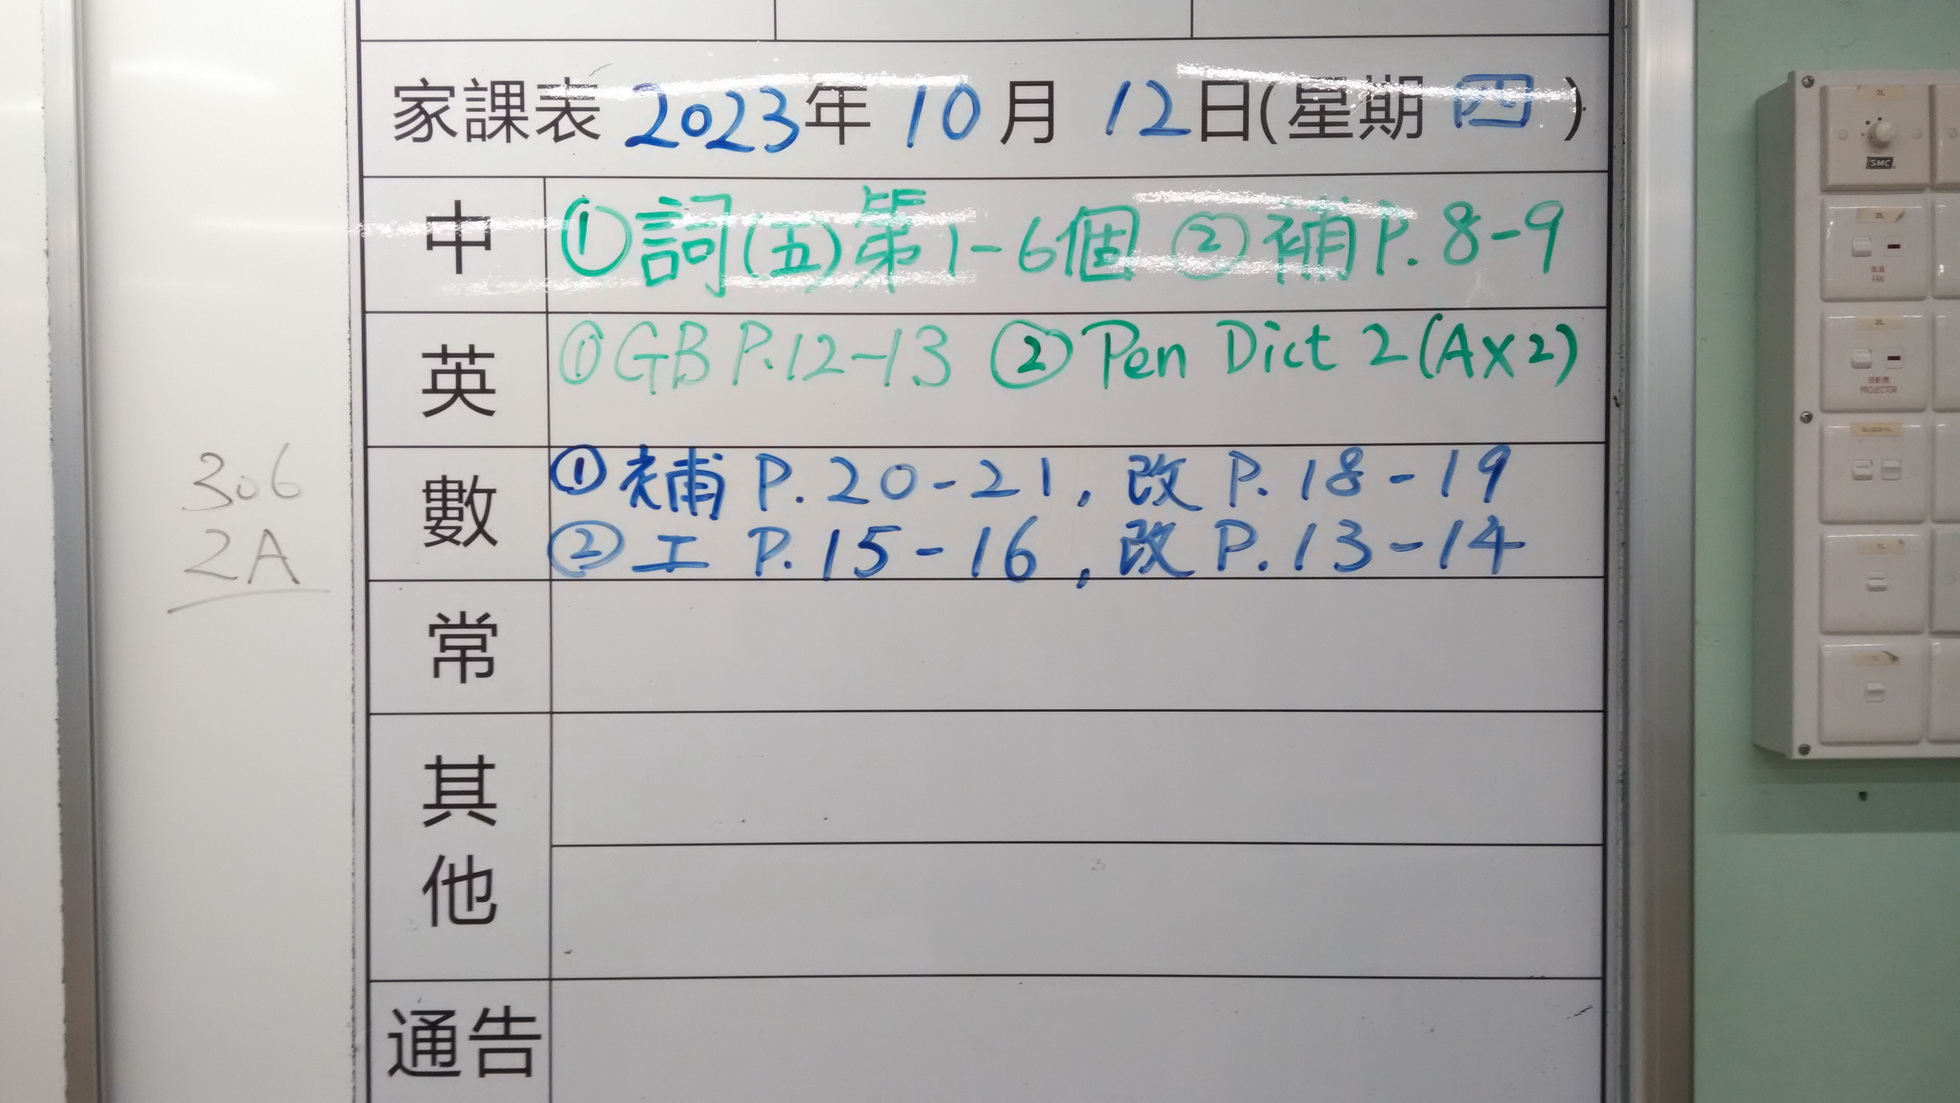 家課表 2023年 10月 12日(星期四)
中 ①詞(五)第1-6個 ②補P.8-9
英 ①GB P.12-13 ②Pen Dict 2(A×2)
數 ①補 P.20-21, 改 P.18-19
②工 P.15-16, 改 P.13-14
常
其他
通告
306
2A
SMC
FAN
PROJECTOR